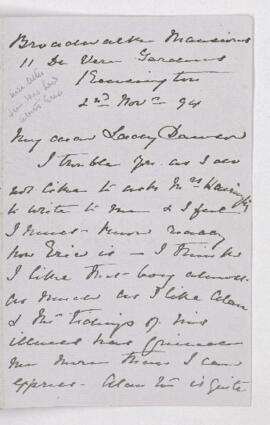 Broadwalk Mansions
11 De Vere Gardens
Kensington
2nd Novr 94
My dear Lady Dawson
I trouble you as I do
not like to ask Mrs
to write to me & I feel
I must know really
how Eric is - I think
I like that boy almost
as much as I like Alan
& the tidings of his
illness has grieved
me more than I can
express. Alan is quite